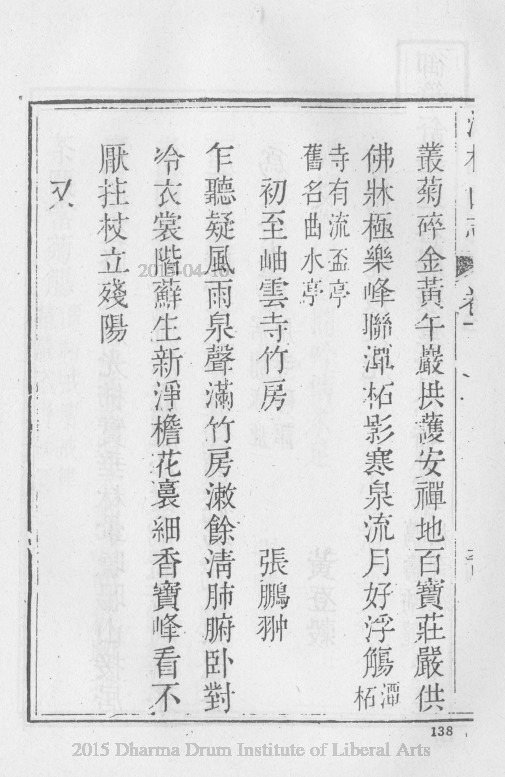 叢菊碎金黃午巖拱護安禪地百寶莊嚴供
佛牀極樂峰聯潭柘影寒泉流月好浮觴潭柘
寺有流盃亭
舊名曲水亭
初至岫雲寺竹房 張鵬翀
乍聽疑風雨泉聲滿竹房漱餘淸肺腑卧對
冷衣裳階蘚生新淨檐花裊細香寶峰看不
厭拄杖立殘陽
又
138
2015 Dharma Drum Institute of Liberal Arts